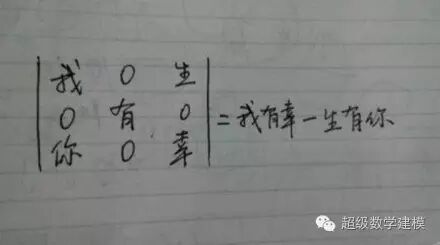 我 0 生
0 有 0 = 我有幸一生有你
你 0 幸
超级数学建模